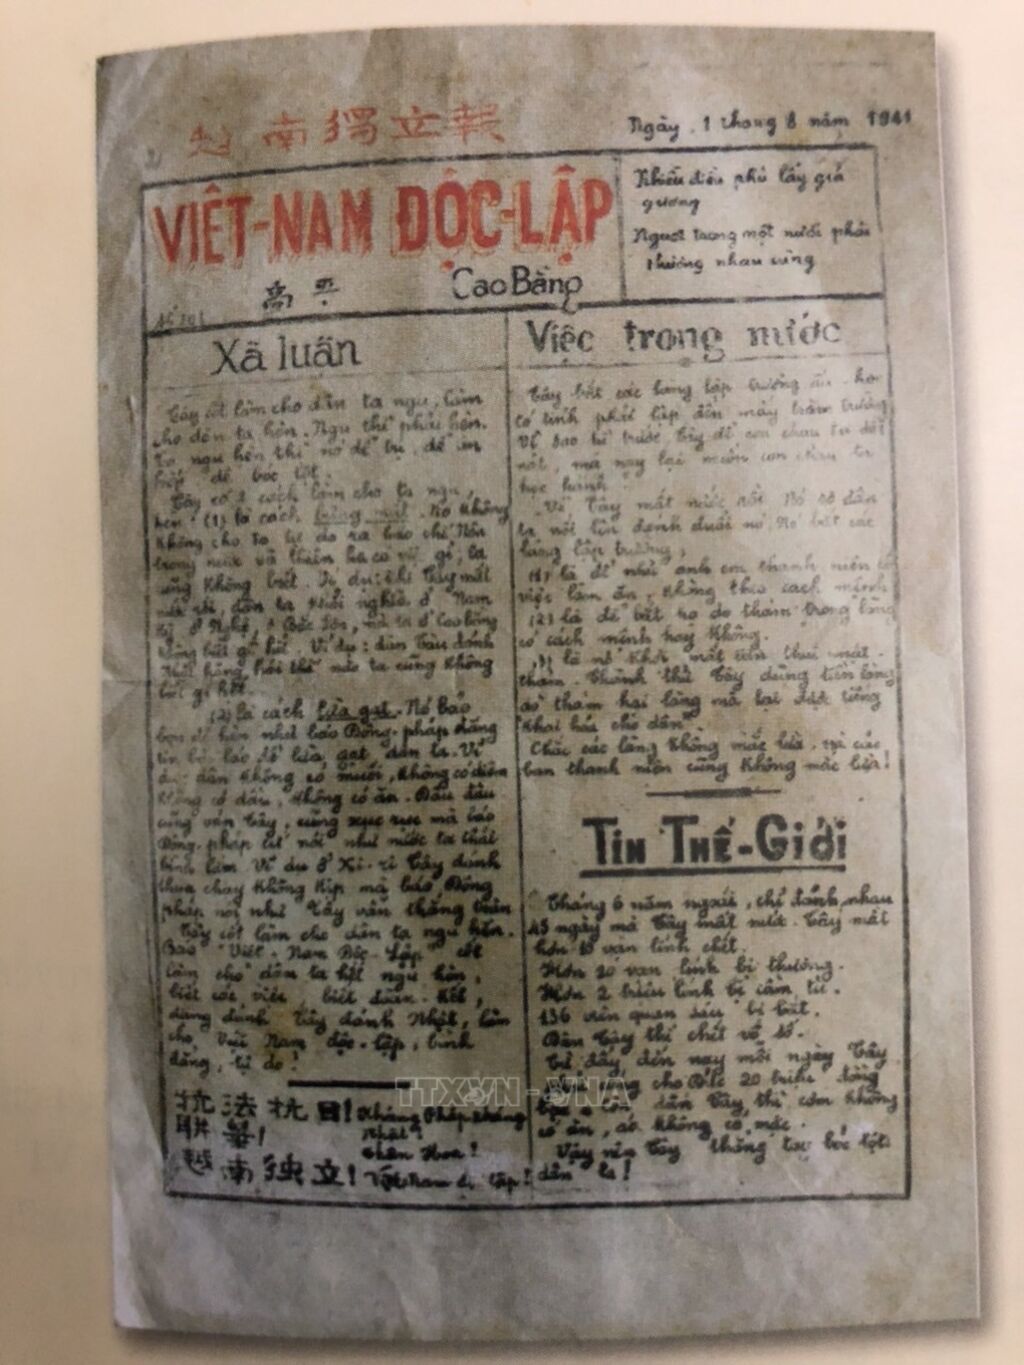 越南獨立報
Ngày 1 tháng 8 năm 1941
VIỆT-NAM ĐỘC-LẬP
高平
Cao Bằng
Số 101
Nhiễu điều phủ lấy giá
gương
Người trong một nước phải
thương nhau cùng
Xã luận
Tây cốt làm cho dân ta ngu, làm
cho dân ta hèn. Ngu thì phải hèn.
Ta ngu hèn thì nó dễ trị, dễ ăn
hiếp dễ bóc lột.
Tây có 2 cách làm cho ta ngu,
hèn (1) là cách bưng mắt. Nó không
không cho ta tự do ra báo chí. Nên
trong nước và thiên hạ có việc gì, ta
cũng không biết. Ví dụ: khi Tây mất
nước rồi, dân ta khởi nghĩa ở Nam
Kỳ, ở Nghệ, ở Bắc Sơn, mà ta ở Cao Bằng
không biết gì hết. Ví dụ: dân Tàu đánh
Nhật hăng hái thế nào ta cũng không
biết gì hết.
(2) là cách lừa gạt. Nó bảo
bọn đê hèn như báo Đông-pháp đăng
tin bá láo để lừa gạt dân ta. Ví
dụ: dân không có muối, không có diêm
không có dầu, không có ăn. Đâu đâu
cũng oán Tây, cũng xục xục mà báo
Đông-pháp lại nói như nước ta thái
bình lắm. Ví dụ ở Xi-ri Tây đánh
thua chạy không kịp mà báo Đông
pháp nói như Tây vẫn thắng trận
Tây cốt làm cho dân ta ngu hèn.
Báo "Việt-Nam Độc-Lập" cốt
làm cho dân ta hết ngu hèn,
biết các việc, biết đoàn-kết,
đặng đánh Tây đánh Nhật, làm
cho Việt Nam độc-lập, bình
đẳng, tự do!
抗法抗日! Kháng Pháp kháng
Nhật!
聯華! Liên Hoa!
越南独立! Việt Nam độc lập!
Việc trong nước
Tây bắt các làng lập trường ấu-học
có tỉnh phải lập đến mấy trăm trường
Vì sao từ trước, Tây để con cháu ta dốt
nát, mà nay lại muốn con cháu ta
học hành
Vì Tây mất nước rồi. Nó sợ dân
ta nổi lên đánh đuổi nó. Nó bắt các
làng lập trường,
(1) là để nhử anh em thanh niên có
việc làm ăn, không theo cách mệnh
(2) là để bắt họ do thám trong làng
có cách mệnh hay không.
là nó khỏi mất tiền thuê mật-
thám. Thành thử Tây dùng tiền làng
do thám hại làng mà lại được tiếng
khai hoá cho dân.
Chắc các làng không mắc lừa, và các
bạn thanh niên cũng không mắc lừa!
TIN THẾ-GIỚI
Tháng 6 năm ngoái, chỉ đánh nhau
45 ngày mà Tây mất nước. Tây mất
hơn 10 vạn lính chết.
Hơn 20 vạn lính bị thương.
Hơn 2 triệu lính bị cầm tù.
136 viên quan sáu bị bắt.
Dân Tây thì chết vô số.
Từ đấy đến nay mỗi ngày Tây
cho Đức 20 triệu đồng
dân Tây thì cơm không
có ăn, áo không có mặc.
Vậy nên Tây thẳng tay bóc lột
dân ta!
TTXVN - VNA